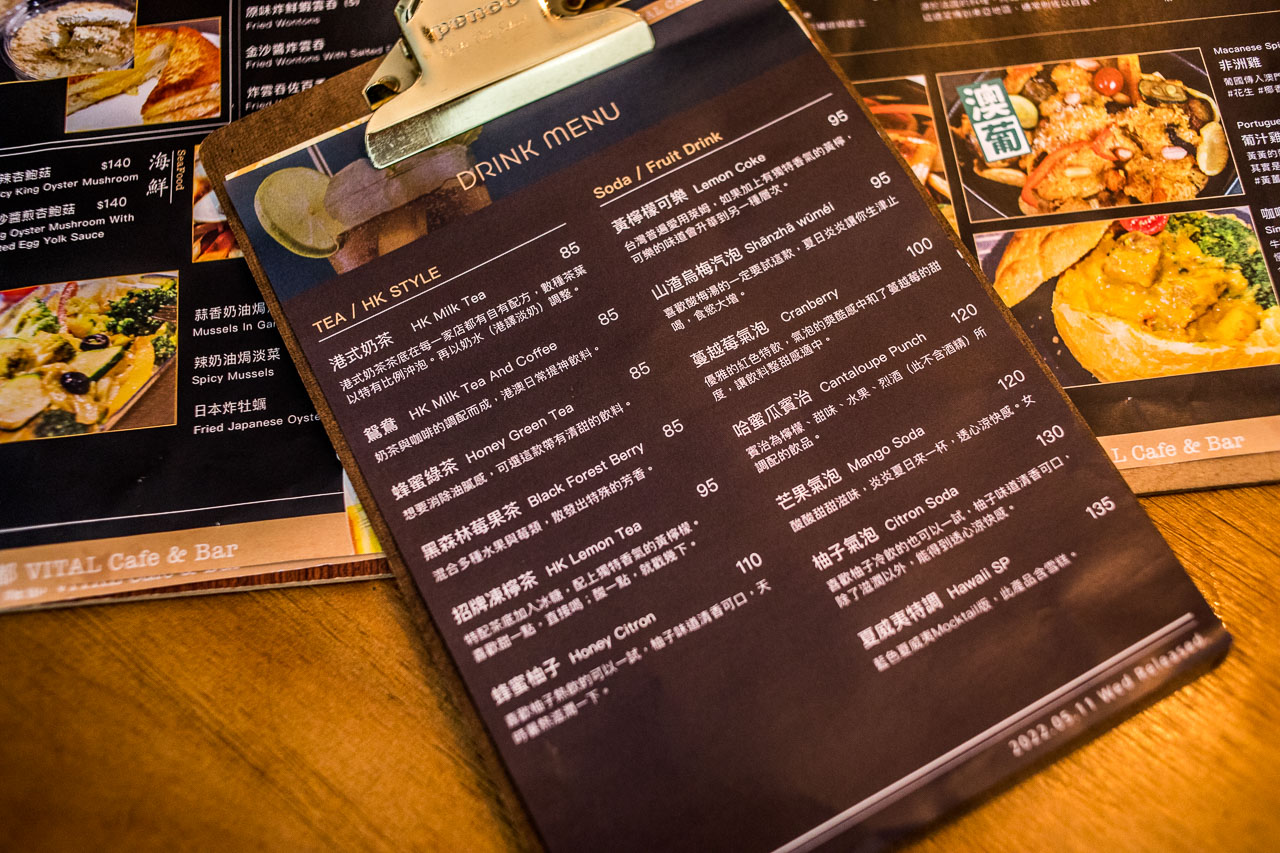 原味炸鮮蝦雲吞 (5)
Fried Wontons
金沙醬炸雲吞
Fried Wontons With Salted
炸雲吞佐百
海鮮
SeaFood
辣杏鮑菇 $140
King Oyster Mushroom
醬煎杏鮑菇 $140
Oyster Mushroom With
Egg Yolk Sauce
蒜香奶油焗
Mussels In
辣奶油焗淡菜
Spicy Mussels
日本炸牡蠣
Fried Japanese
VITAL Cafe & Bar
DRINK MENU
TEA / HK STYLE
港式奶茶 HK Milk Tea 85
港式奶茶茶底在每一家店都有自有配方，數種茶葉
以特有比例沖泡。再以奶水（港譯淡奶）調整。
鴛鴦 HK Milk Tea And Coffee 85
奶茶與咖啡的調配而成，港澳日常提神飲料。
蜂蜜綠茶 Honey Green Tea 85
想要消除油膩感，可選這款帶有清甜的飲料。
黑森林莓果茶 Black Forest Berry 85
混合多種水果與莓類，散發出特殊的芳香。
招牌凍檸茶 HK Lemon Tea 95
特配茶底加入冰糖，配上獨特香氣的黃檸檬。
喜歡甜一點，直接喝；酸一點，就戳幾下。
蜂蜜柚子 Honey Citron 110
喜歡柚子熱飲的可以一試，柚子味道清香可口，天
時暑熱滋潤一下。
Soda / Fruit Drink
黃檸檬可樂 Lemon Coke 95
台灣普遍愛用萊姆，如果加上有獨特香氣的黃檸，
可樂的味道會升華到另一種層次。
山渣烏梅汽泡 Shānzhā wūméi 95
喜歡酸梅湯的一定要試這款，夏日炎炎讓你生津止
喝，食慾大增。
蔓越莓氣泡 Cranberry 100
優雅的紅色特飲，氣泡的爽酷感中和了蔓越莓的甜
度，讓飲料整甜感適中。
哈蜜瓜賓治 Cantaloupe Punch 120
賓治為檸檬、甜味、水果、烈酒（此不含酒精）所
調配的飲品。
芒果氣泡 Mango Soda 120
酸酸甜甜滋味，炎炎夏日來一杯，透心涼快感。女
柚子氣泡 Citron Soda 130
喜歡柚子冷飲的也可以一試，柚子味道清香可口，
除了滋潤以外，能得到透心涼快感。
夏威夷特調 Hawaii SP 135
藍色夏威夷Mocktail版，此產品含雪糕。
2022.05.11 Wed Released
澳葡
Macanese
非洲雞
葡國傳入澳門
#花生 #椰香
Portuguese
葡汁雞
L Cafe & Bar